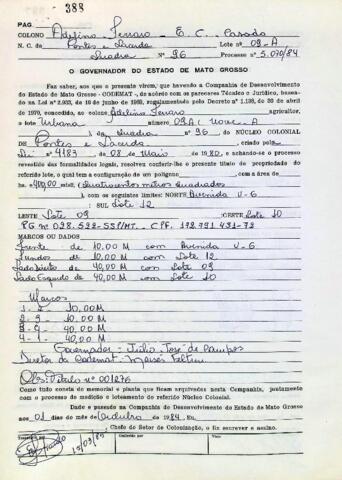 388
PAG
COLONO Adelino Ferraro - E. C. Casado
N. C. de Pontes e Lacerda Lote nº 09-A
Quadra Nº 96 Processo nº 5.070/84
O GOVERNADOR DO ESTADO DE MATO GROSSO
Faz saber, aos que o presente virem, que havendo a Companhia de Desenvolvimento
do Estado de Mato Grosso - CODEMAT -, de acôrdo com os pareceres Técnico e Jurídico, basea-
do na Lei nº 2.933, de 16 de junho de 1969, regulamentado pelo Decreto nº 1.138, de 30 de abril
de 1970, concedido ao colono Adelino Ferraro agricultor,
o lote Urbana nº 09A (Nove - A
), da Quadra nº 96 do NÚCLEO COLONIAL
DE Pontes e Lacerda criado pelo
Lei nº 4183 de 08 de Maio de 1980, e achando-se o processo
revestido das formalidades legais, resolveu conferir-lhe o presente título de propriedade do
referido lote, o qual tem a configuração de um polígono com a área de
Ha 400,00 m2 (Quatrocentos metros quadrados
), com os seguintes limites: NORTE Avenida V-6
SUL Lote 12
LESTE Lote 09 OESTE Lote 10
MARCOS OU DADOS
Frente de 10.00 M com Avenida V-6
Fundos de 10.00 M com Lote 12
Lado Direito de 40,00 M com Lote 09
Lado Esquerdo de 40,00 M com Lote 10
Marcos
1 - 2 - 10,00 M
2 - 3 - 10.00 M
3 - 4 - 40.00 M
4 - 1 - 40,00 M
Governador - Júlio José de Campos
Diretor da Codemat - Moisés Feltrin
Obs: Título nº 001276
Como tudo consta do memorial e planta que ficam arquivados nesta Companhia, juntamente
com o processo de medição e loteamento do referido Núcleo Colonial.
Dado e passado na Companhia de Desenvolvimento do Estado de Mato Grosso
aos 01 dias do mês de Outubro de 1984. Eu,
, Chefe do Setor de Colonização, o fiz escrever e assino.
Transcrito por Conferido por Visto
15/03/85